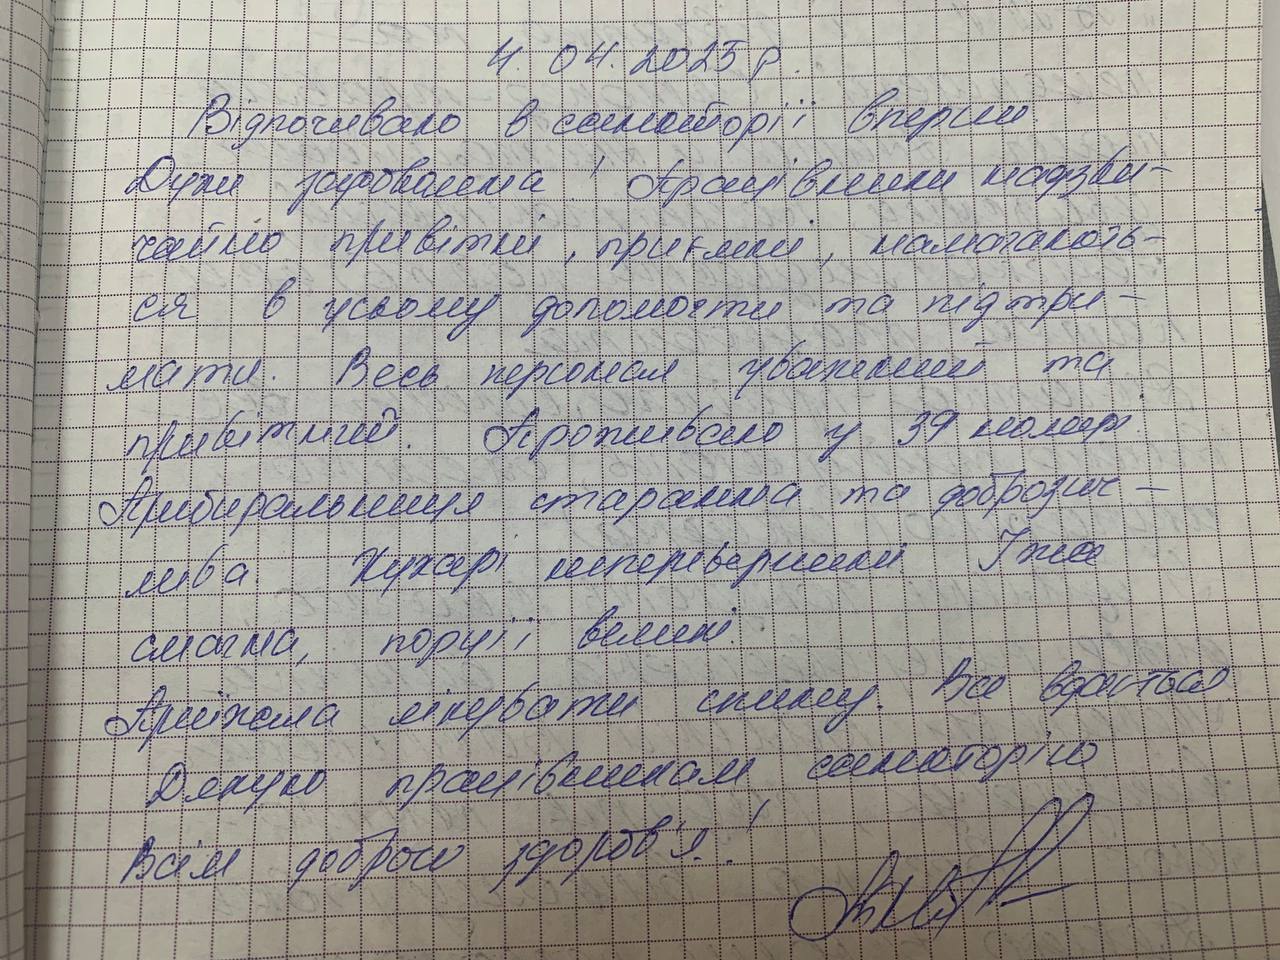 4. 04. 2025 р.
Відпочиваю в санаторії вперше.
Дуже задоволена! Працівники надзви-
чайно привітні, приємні, намагають-
ся в усьому допомогти та підтри-
мати. Весь персонал уважний та
привітний. Проживаю у 39 палаті.
Прибиральниця старанна та доброзич-
лива. Кухарі неперевершені Їжа
смачна, порції великі.
Приїхала лікувати спину. Все вдається
Дякую працівникам санаторію
Всім доброго здоров'я!